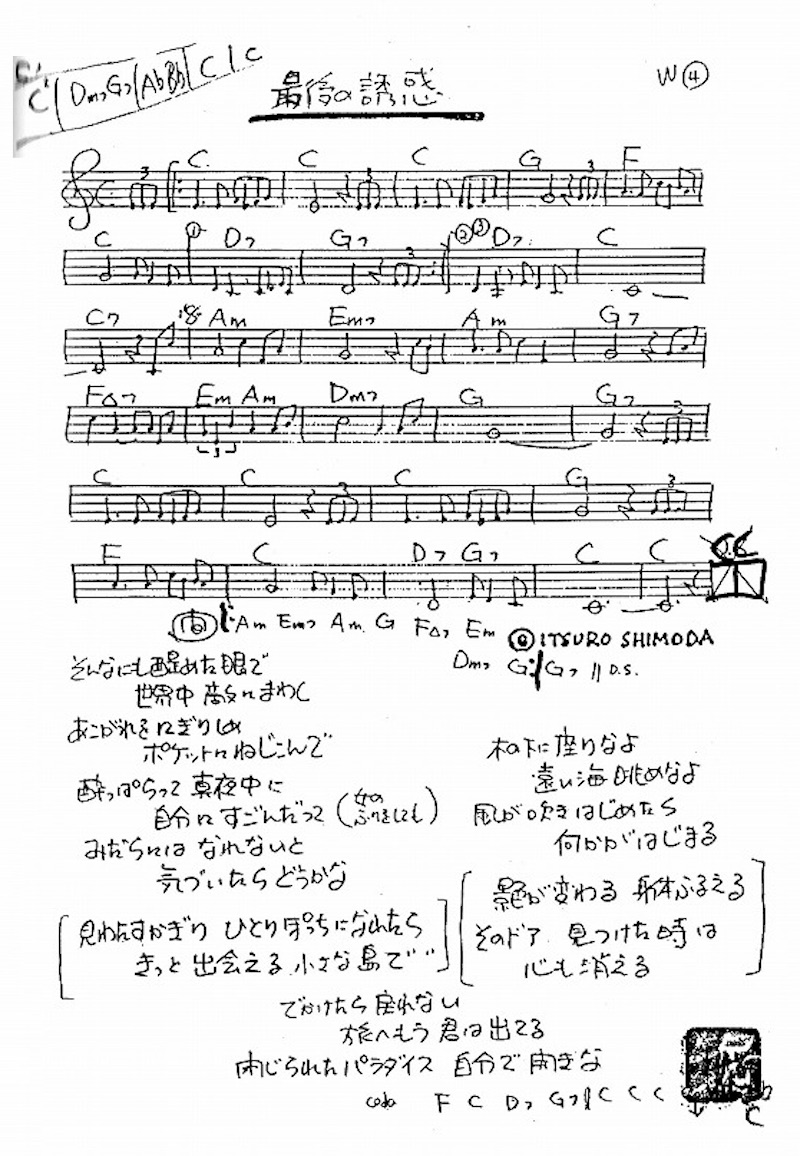 C | Dm7 G7 | A♭ B♭ | C | C
最後の誘惑
W④
3 C C 3 C G 3 F
C ① D7 G7 3 ②③ D7 C
C7 Am Em7 Am G7
F△7 Em Am Dm7 G G7
3 3
C C 3 C G 3
F C D7 G7 C C D.C
Am Em7 Am G F△7 Em
Ⓒ ITSURO SHIMODA
Dm7 G7 | G7 // D.S.
そんなにも醒めた眼で
世界中 敵にまわし
あこがれをにぎりしめ
ポケットにねじこんで
酔っぱらって 真夜中に
自分にすごんだって (女のふりをしても)
みだらには なれないと
気づいたらどうかな
[見わたすかぎり ひとりぼっちになれたら
きっと 出会える 小さな島で]
木の下に座りなよ
遠い海眺めなよ
風が吹きはじめたら
何かがはじまる
[影が変わる 身体ふるえる
そのドア 見つけた時は
心も消える]
でかけたら戻れない
旅へもう 君は出てる
閉じられたパラダイス 自分で開きな
coda F C D7 G7 | C C C
C